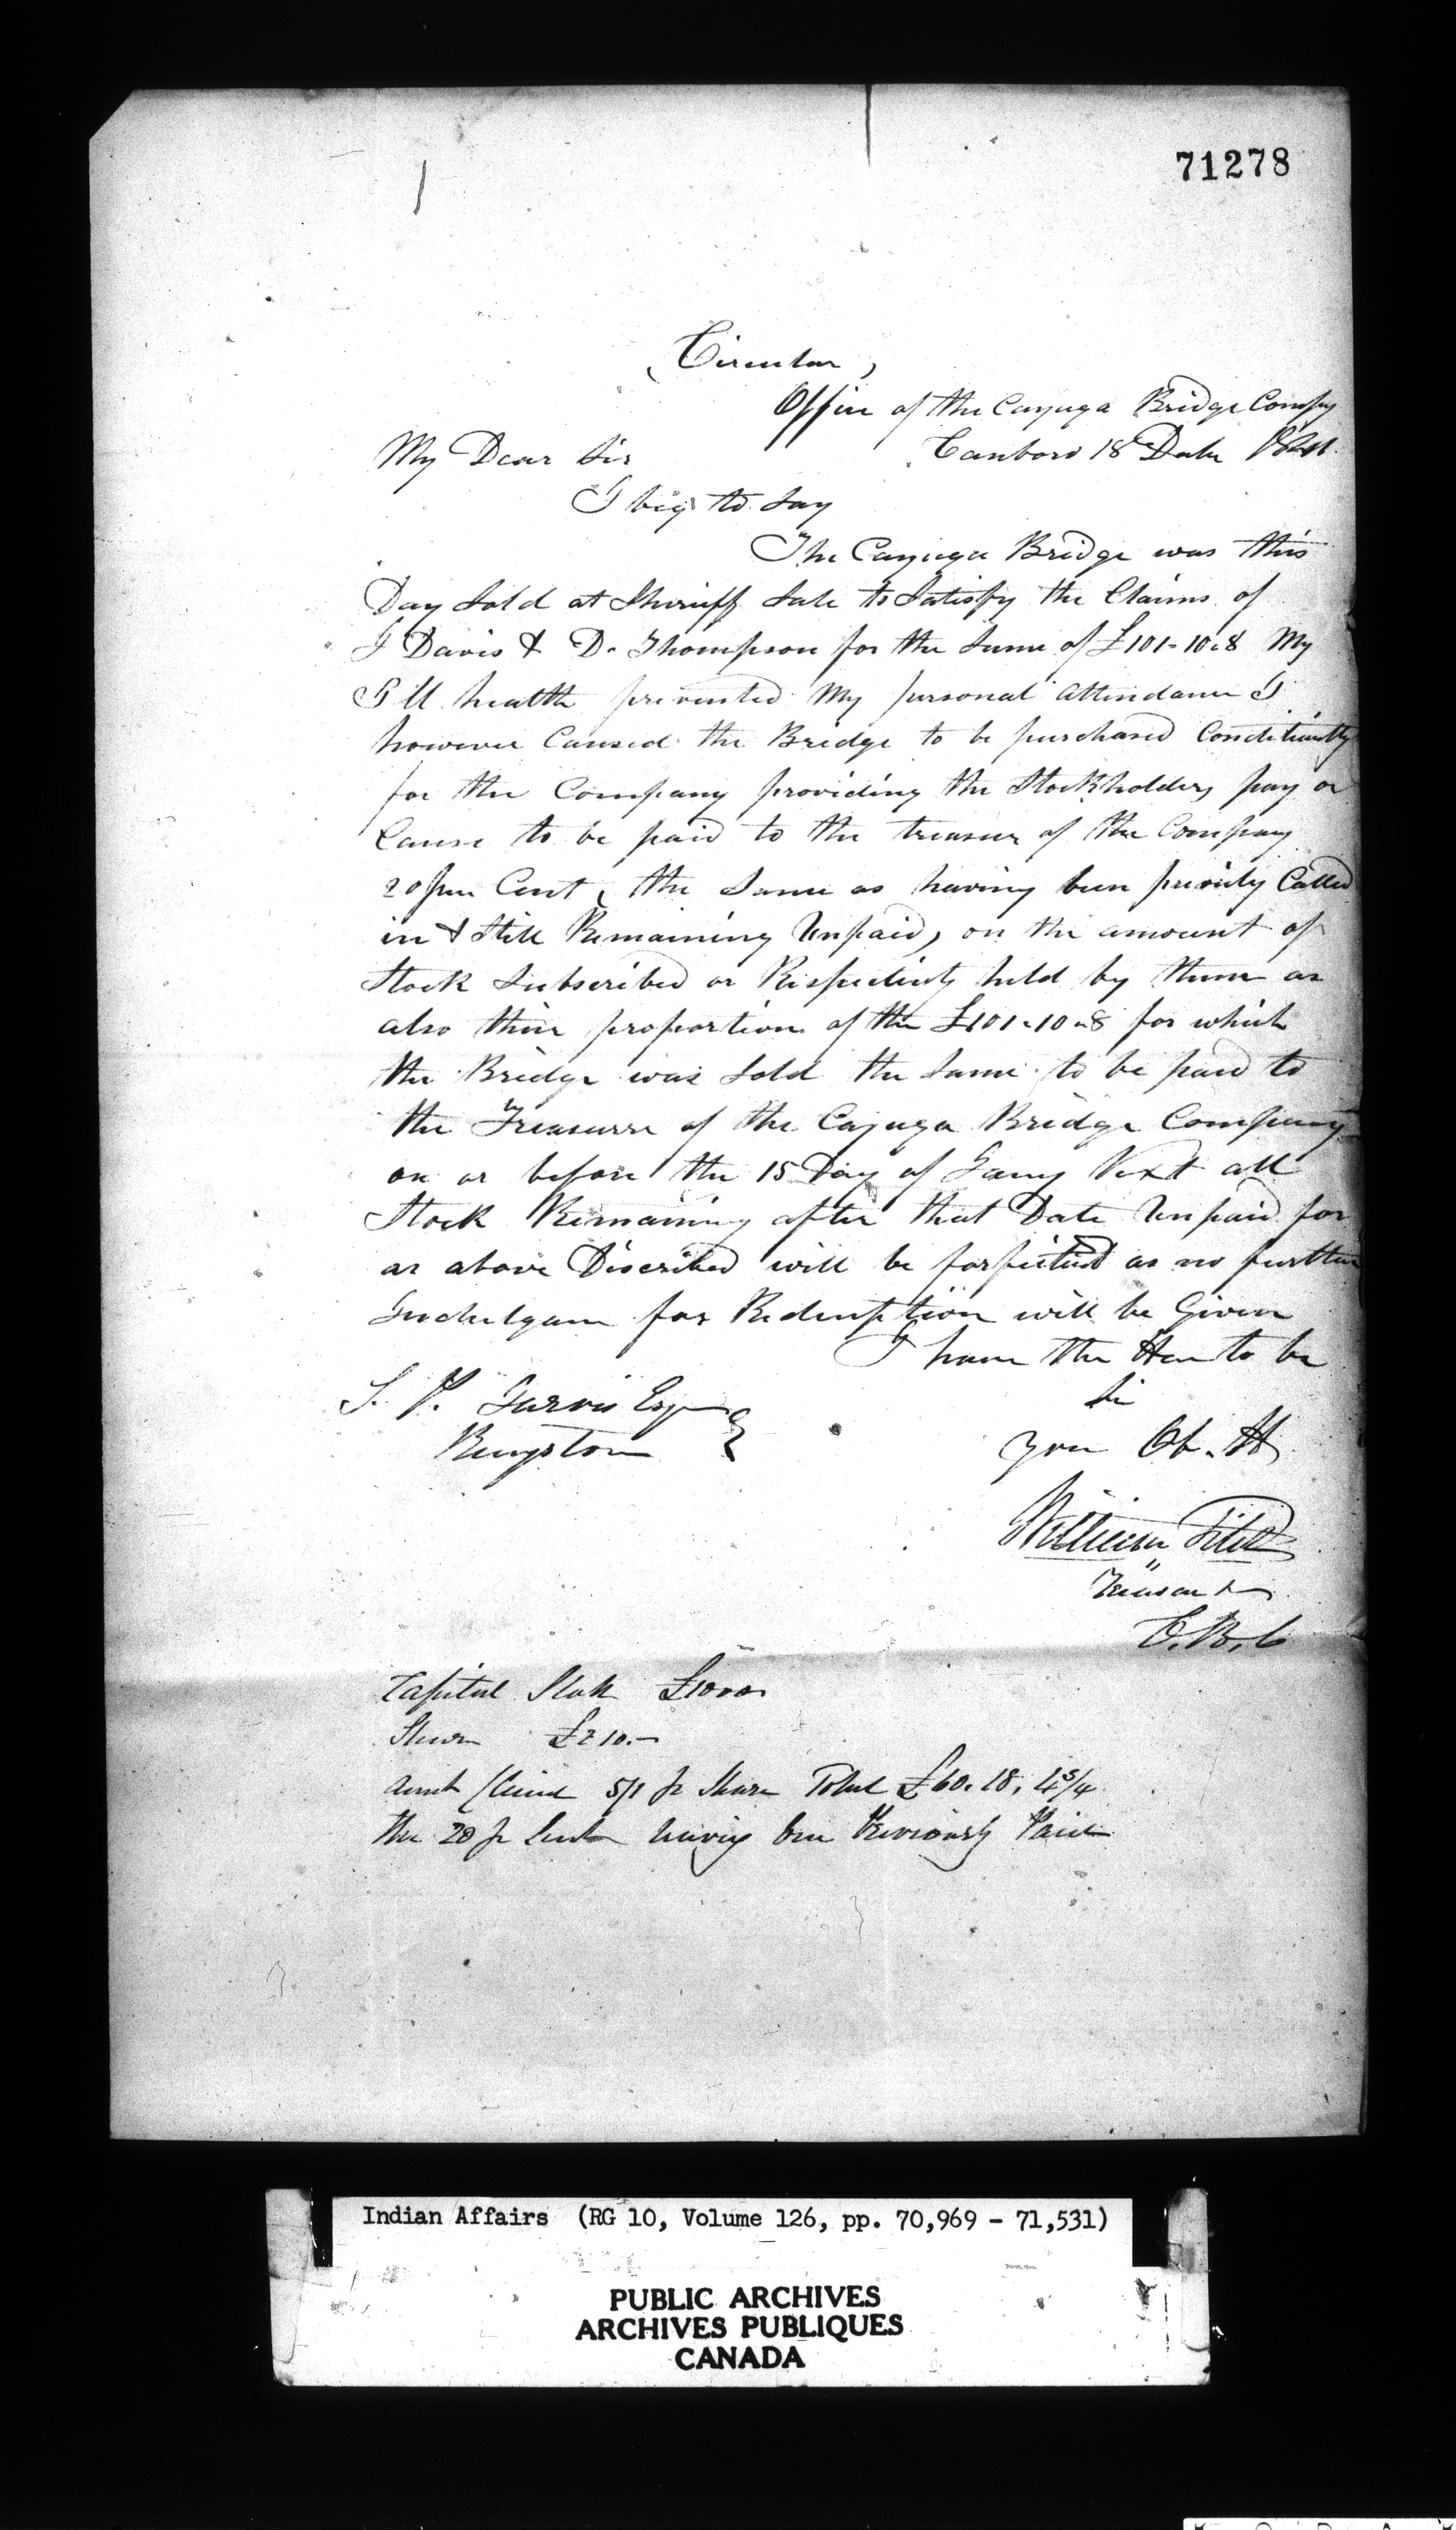 71278
Circular,
Office of the Cayuga Bridge Compy
My Dear Sir
Canboro 18 Decbr
I beg to Say
The Cayuga Bridge was this
Day Sold at Sheriff Sale to Satisfy the Claims of
J Davis & D. Thompson for the Sum of £101-10.8 My
Ill health prevented My personal attendance I
however Caused the Bridge to be purchased Conditionally
for the Company providing the Stockholders pay or
Cause to be paid to the treasurer of the Company
20 per Cent, the Same as having been previously Called
in & Still Remaining Unpaid, on the amount of
Stock Subscribed or Respectively held by them as
also their proportion of the £101-10-8 for which
the Bridge was Sold the Same to be paid to
the Treasurer of the Cayuga Bridge Company
on or before the 15 Day of Jany Next all
Stock Remaining after that Date Unpaid for
as above Discribed will be forfeited as no further
Indulgance for Redemption will be Given
I have the Hon to be
Sir
S. P. Jarvis Esqr
Kingston
Your Ob. St
William Fitch
Treasurer
C.B.C
Capital Stock £1000
Share £210.-
Amt Claimd 5/1 pr Share Total £60.18.4 3/4
the 20 pr Cent having been Previously Paid
Indian Affairs (RG 10, Volume 126, pp. 70,969 - 71,531)
PUBLIC ARCHIVES
ARCHIVES PUBLIQUES
CANADA